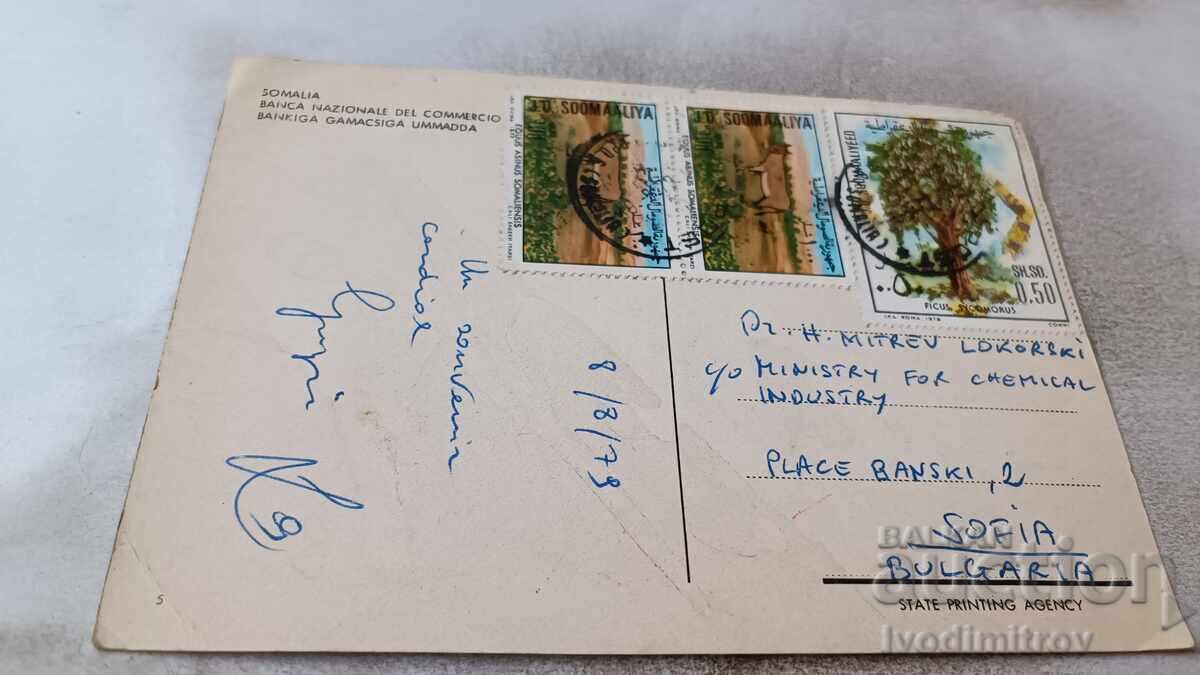 SOMALIA
BANCA NAZIONALE DEL COMMERCIO
BANKIGA GAMACSIGA UMMADDA
J.D. SOOMAALIYA
EQUUS ASINUS SOMALIENSIS
J.D. SOOMAALIYA
EQUUS ASINUS SOMALIENSIS
SH.SO.
0.50
FICUS SYCOMORUS
I.P.S. ROMA 1978
CORVI
Un souvenir
cordial
8/8/79
Dr. H. MITREV LOKORSKI
c/o MINISTRY FOR CHEMICAL
INDUSTRY
PLACE BANSKI, 2
SOFIA
BULGARIA
STATE PRINTING AGENCY
5
BALKAN
auction
Ivodimitrov